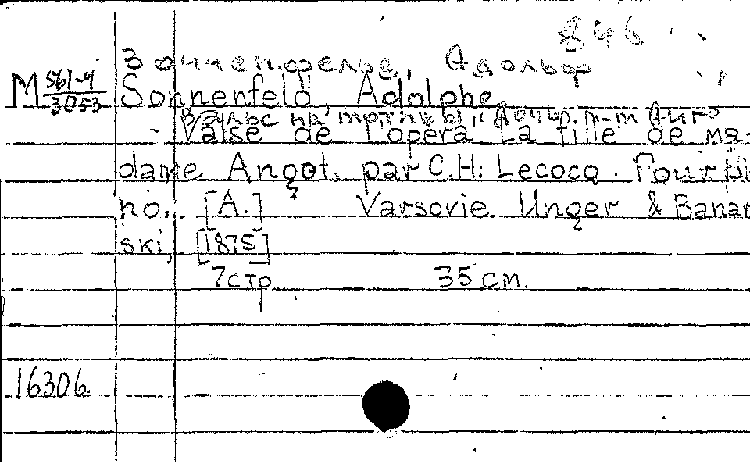 846
Зонненфельд, Адольф
М 561-4/3053 Sonnenfeld, Adolphe
Вальс на мотивы
Valse de l'opéra La fille de ma-
dame Angot, par C.H: Lecocq. Pour pia-
no.. [A.] Varsovie. Unger & Banar-
ski, [1875]
7 стр 35 см.
16306